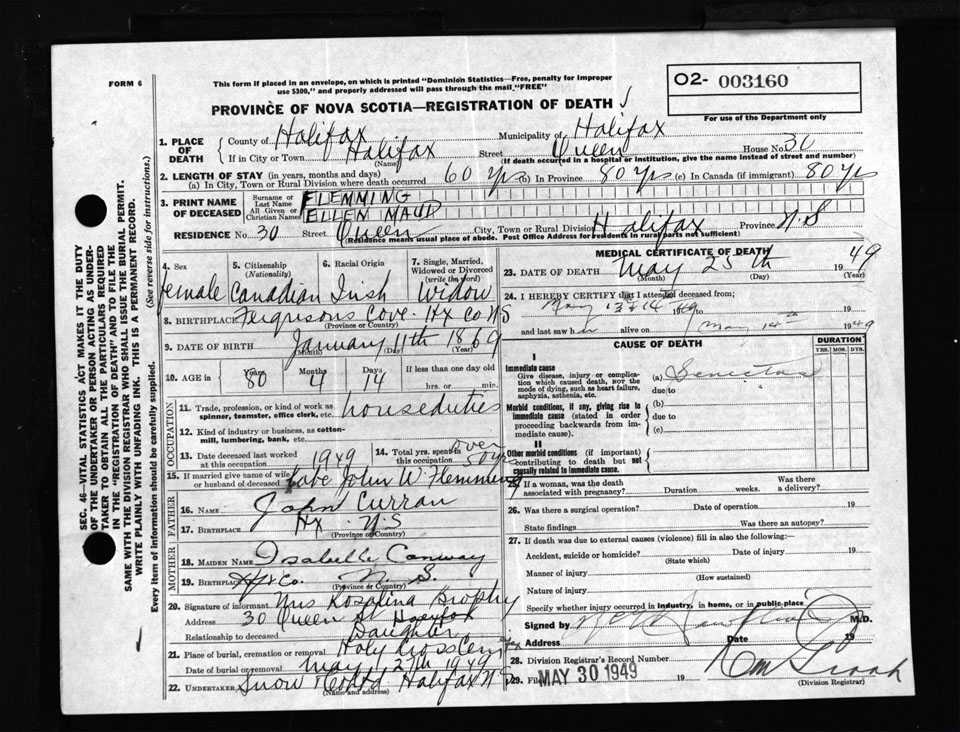 FORM 6
This form if placed in an envelope, on which is printed "Dominion Statistics—Free, penalty for improper
use $300," and properly addressed will pass through the mail "FREE"
O2- 003160
For use of the Department only
PROVINCE OF NOVA SCOTIA—REGISTRATION OF DEATH
1. PLACE OF DEATH County of Halifax Municipality of Halifax
If in City or Town Halifax (Name) Street Queen House No. 30
(If death occurred in a hospital or institution, give the name instead of street and number)
2. LENGTH OF STAY (in years, months and days)
(a) In City, Town or Rural Division where death occurred 60 yrs (b) In Province 80 yrs (c) In Canada (if immigrant) 80 yrs
3. PRINT NAME OF DECEASED Surname or Last Name FLEMMING
All Given or Christian Names ELLEN MAUD
RESIDENCE No. 30 Street Queen City, Town or Rural Division Halifax Province N.S
(Residence means usual place of abode. Post Office Address for residents in rural parts not sufficient)
4. Sex 5. Citizenship (Nationality) 6. Racial Origin 7. Single, Married, Widowed or Divorced (write the word)
female Canadian Irish Widow
8. BIRTHPLACE Fergusons Cove Hx Co N S
(Province or Country)
9. DATE OF BIRTH January 11th 1869
(Month) (Day) (Year)
10. AGE in Years 80 Months 4 Days 14 If less than one day old hrs. or min.
OCCUPATION
11. Trade, profession, or kind of work as spinner, teamster, office clerk, etc. houseduties
12. Kind of industry or business, as cotton-mill, lumbering, bank, etc.
13. Date deceased last worked at this occupation 1949 14. Total yrs. spent in this occupation over 50 yrs
15. If married give name of wife or husband of deceased Late John W Flemming
FATHER
16. NAME John Curran
17. BIRTHPLACE Hx N.S
(Province or Country)
MOTHER
18. MAIDEN NAME Isabelle Conway
19. BIRTHPLACE Hx Co. N. S.
(Province or Country)
20. Signature of informant Mrs Rosalina Brophy
Address 30 Queen St Halifax
Relationship to deceased Daughter
21. Place of burial, cremation or removal Holy Cross Cem
Date of burial or removal May 27th 1949
22. UNDERTAKER Snow Halifax N
(Name and address)
MEDICAL CERTIFICATE OF DEATH
23. DATE OF DEATH May 25th 1949
(Month) (Day) (Year)
24. I HEREBY CERTIFY that I attended deceased from;
May 1949
and last saw h alive on May 1949
CAUSE OF DEATH DURATION
YRS. MOS. DYS.
I
Immediate cause
Give disease, injury or complication which caused death, NOT the mode of dying, such as heart failure, asphyxia, asthenia, etc.
(a) Senectus
due to
(b)
due to
(c)
Morbid conditions, if any, giving rise to immediate cause (stated in order proceeding backwards from immediate cause).
II
Other morbid conditions (if important) contributing to death but not causally related to immediate cause.
25. If a woman, was the death associated with pregnancy? Duration weeks. Was there a delivery?
26. Was there a surgical operation? Date of operation 19
State findings Was there an autopsy?
27. If death was due to external causes (violence) fill in also the following:—
Accident, suicide or homicide? Date of injury 19
(State which)
Manner of injury
(How sustained)
Nature of injury
Specify whether injury occurred in industry, in home, or in public place
Signed by M.D.
Address Date 19
28. Division Registrar's Record Number
29. Filed MAY 30 1949 19
(Division Registrar)
SEC. 46—VITAL STATISTICS ACT MAKES IT THE DUTY
OF THE UNDERTAKER OR PERSON ACTING AS UNDERTAKER TO OBTAIN ALL THE PARTICULARS REQUIRED
IN THE "REGISTRATION OF DEATH" AND TO FILE THE
SAME WITH THE DIVISION REGISTRAR WHO SHALL ISSUE THE BURIAL PERMIT.
WRITE PLAINLY WITH UNFADING INK. THIS IS A PERMANENT RECORD.
Every item of information should be carefully supplied. (See reverse side for instructions.)